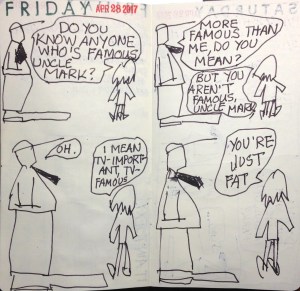 FRIDAY
APR 28 2017
DO YOU
KNOW ANYONE
WHO'S FAMOUS,
UNCLE
MARK?
MORE
FAMOUS THAN
ME, DO YOU
MEAN?
BUT YOU
AREN'T
FAMOUS,
UNCLE MARK.
OH.
I MEAN
TV-IMPORT-
ANT, TV-
FAMOUS.
YOU'RE
JUST
FAT